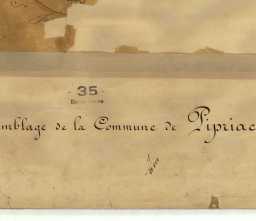 35
mblage de la Commune de Pipriac